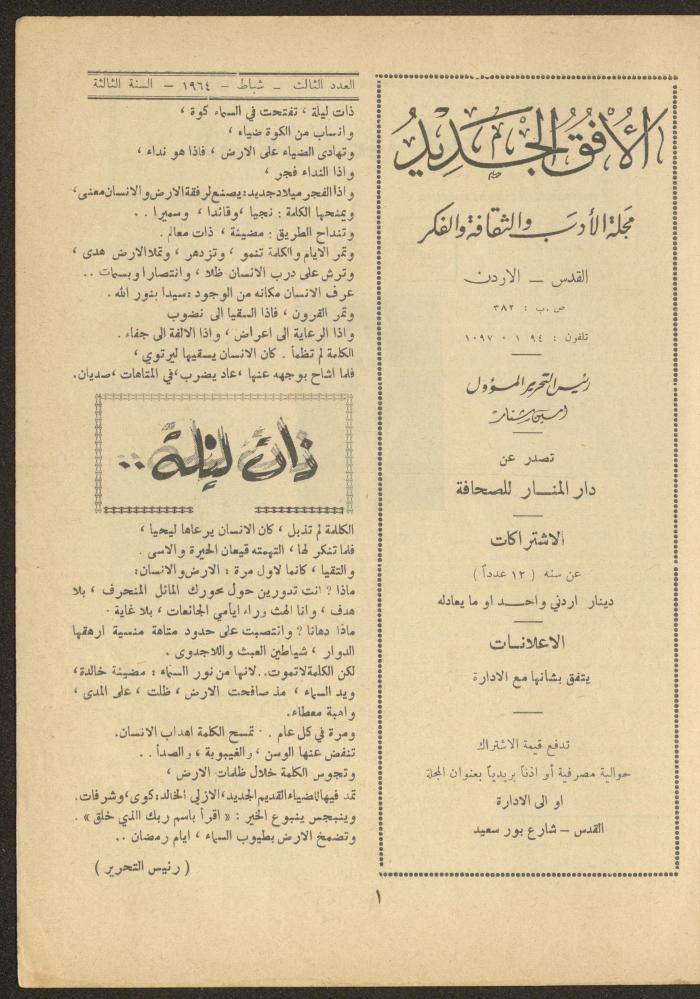 الأفق الجديد
مجلة الأدب والثقافة والفكر
القدس ــ الاردن
ص.ب : ٣٨٢
تلفون : ٩٤ ١٠ ١٠٩٧
رئيس التحرير المسؤول
امين شنار
تصدر عن
دار المنـــار للصحافة
الاشتراكات
عن سنه ( ١٢ عدداً )
دينار اردني واحـــد او ما يعادله
الاعلانـــات
يتفق بشانها مع الادارة
تدفع قيمة الاشتراك
حوالية مصرفية أو اذناً بريدياً بعنوان المجلة
او الى الادارة
القدس – شارع بور سعيد
العدد الثالث ــ شباط – ١٩٦٤ – السنة الثالثة
ذات ليلة ، تفتحت في السماء كوة ،
وانساب من الكوة ضياء ،
وتهادى الضياء على الارض ، فاذا هو نداء ،
واذا النداء فجر ،
واذا الفجر ميلاد جديد: يصنع لرفقة الارض والانسان معنى،
ويمنحها الكلمة : نجيا ، وقائدا ، وسميرا . .
وتنداح الطريق : مضيئة ، ذات معالم .
وتمر الايام والكلمة تنمو ، وتزدهر ، وتملا الارض هدى ،
وترش على درب الانسان ظلا ، وانتصارا وبسمات ..
عرف الانسان مكانه من الوجود : سيدا بنور الله .
وتمر القرون ، فاذا السقيا الى نضوب
واذا الرعاية الى اعراض ، واذا الالفة الى جفاء .
الكلمة لم تظمأ . كان الانسان يسقيها ليرتوي ،
فلما اشاح بوجهه عنها ، عاد يضرب ، في المتاهات ، صديان.
ذات ليلة ..
الكلمة لم تذبل ، كان الانسان يرعاها ليحيا ،
فلما تنكر لها ، التهمته قيعان الحيرة والاسى .
والتقيا ، كانما لاول مرة : الارض والانسان:
ماذا ? انت تدورين حول محورك المائل المنحرف ، بلا
هدف ، وانا الهث وراء ايامي الجائعات ، بلا غاية .
ماذا دهانا ? وانتصبت على حدود متاهة منسية ارهقها
الدوار ، شياطين العبث واللاجدوى .
لكن الكلمة لاتموت.. لانها من نور السماء : مضيئة خالدة،
ويد السماء ، مذ صافحت الارض ، ظلت ، على المدى ،
واهبة معطاء.
ومرة في كل عام . . تمسح الكلمة اهداب الانسان.
تنفض عنها الوسن ، والغيبوبة ، والصدأ . .
وتجوس الكلمة خلال ظلمات الارض ،
تمد فيها للضياء القديم الجديد، الازلي الخالد: كوى، وشرفات.
وينبجس ينبوع الخير : « اقرأ باسم ربك الذي خلق » .
وتضمخ الارض بطيوب السماء ، ايام رمضان ..
( رئيس التحرير )
١